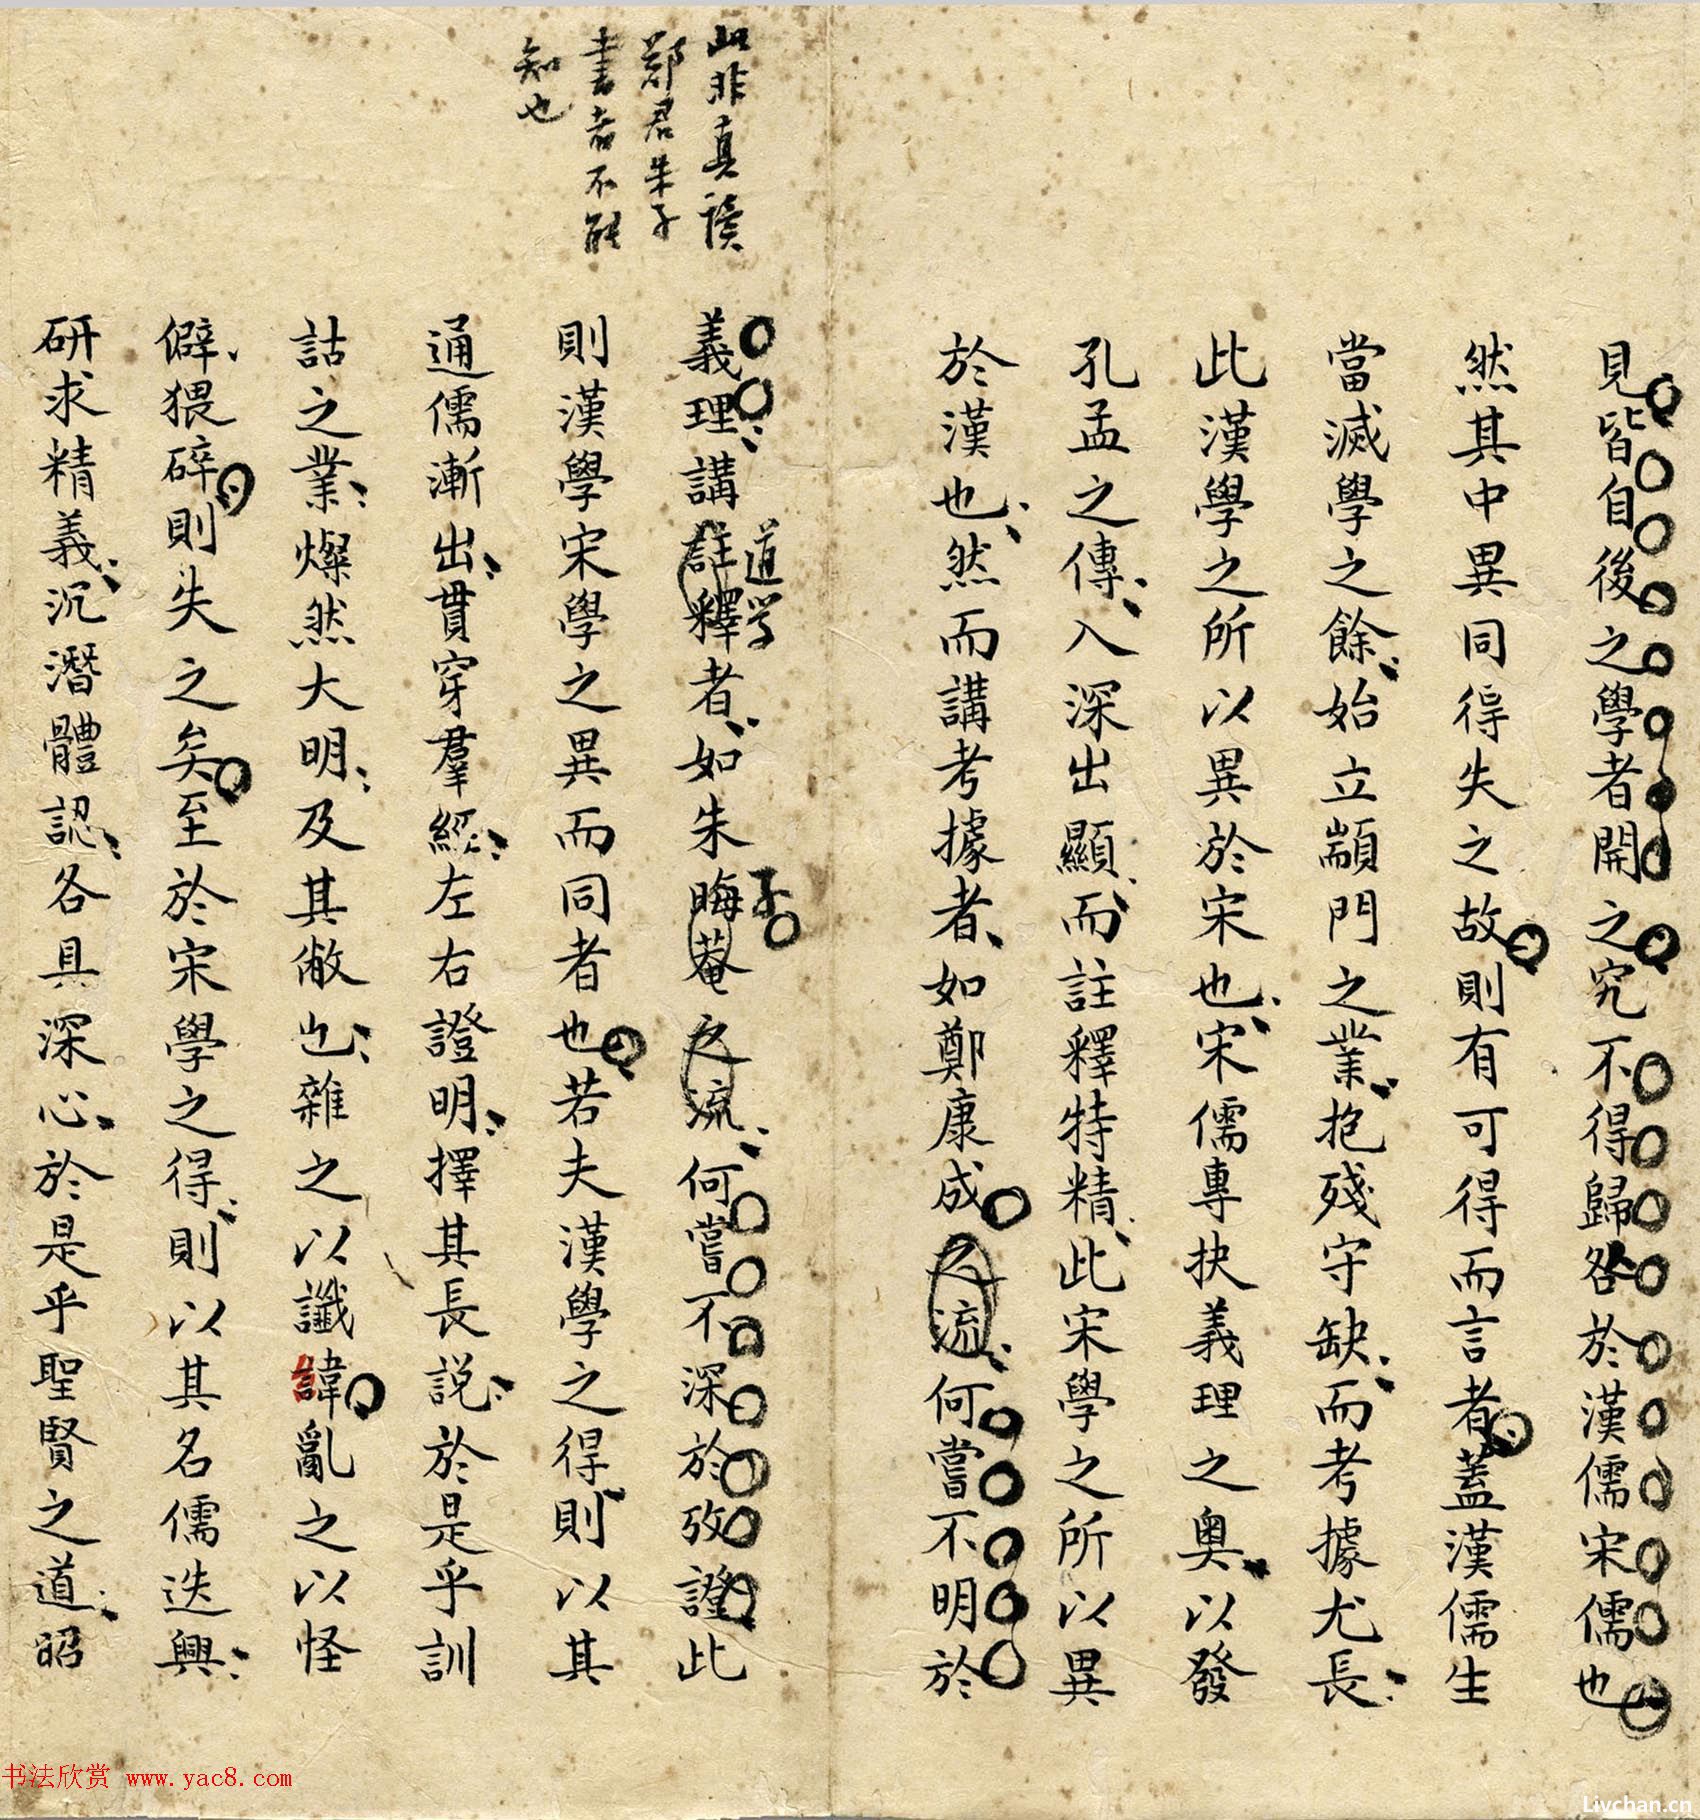 見皆自後之學者開之究不得歸咎於漢儒宋儒也
然其中異同得失之故則有可得而言者蓋漢儒生
當滅學之餘始立顓門之業抱殘守缺而考據尤長
此漢學之所以異於宋也宋儒專抉義理之奧以發
孔孟之傳入深出顯而註釋特精此宋學之所以異
於漢也然而講考據者如鄭康成之流何嘗不明於
此非真讀
鄭君朱子
書者不能
知也
義理講註釋者如朱晦菴之流何嘗不深於攷證此
道学
子
則漢學宋學之異而同者也若夫漢學之得則以其
通儒漸出貫穿羣經左右證明擇其長説於是乎訓
詁之業燦然大明及其敝也雜之以讖諱亂之以怪
僻猥碎則失之矣至於宋學之得則以其名儒迭興
研求精義沉潛體認各具深心於是乎聖賢之道昭
书法欣赏 www.yac8.com
Livchan.cn